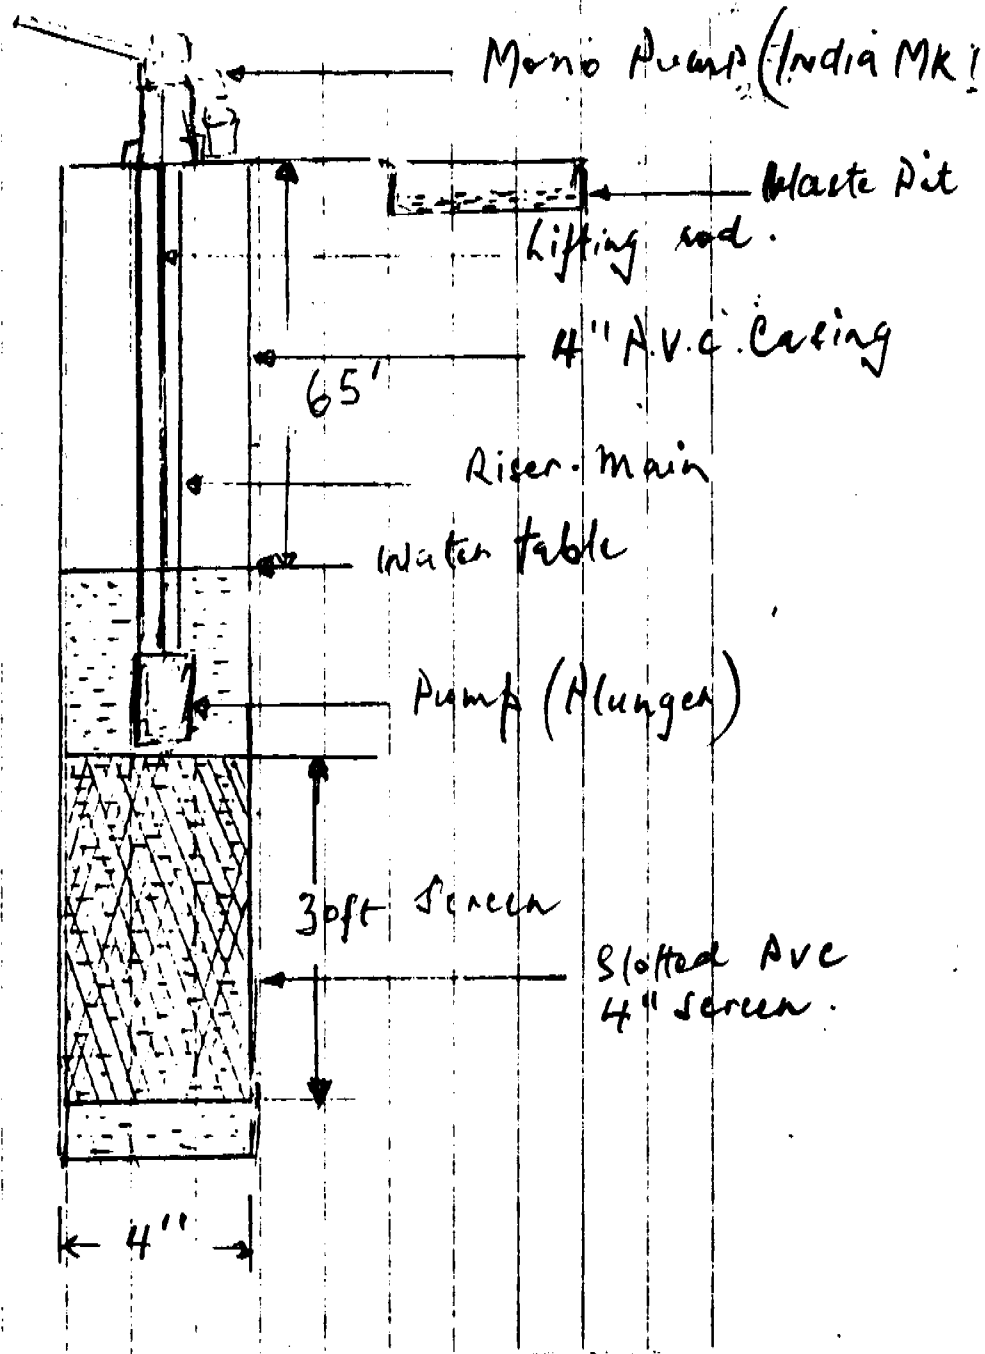 Mono Pump (India Mk I
Waste Pit
Lifting rod.
4" P.V.C. Casing
65'
Riser. Main
Water table
Pump (Plunger)
30ft Screen
Slotted PVC
4" screen.
4"